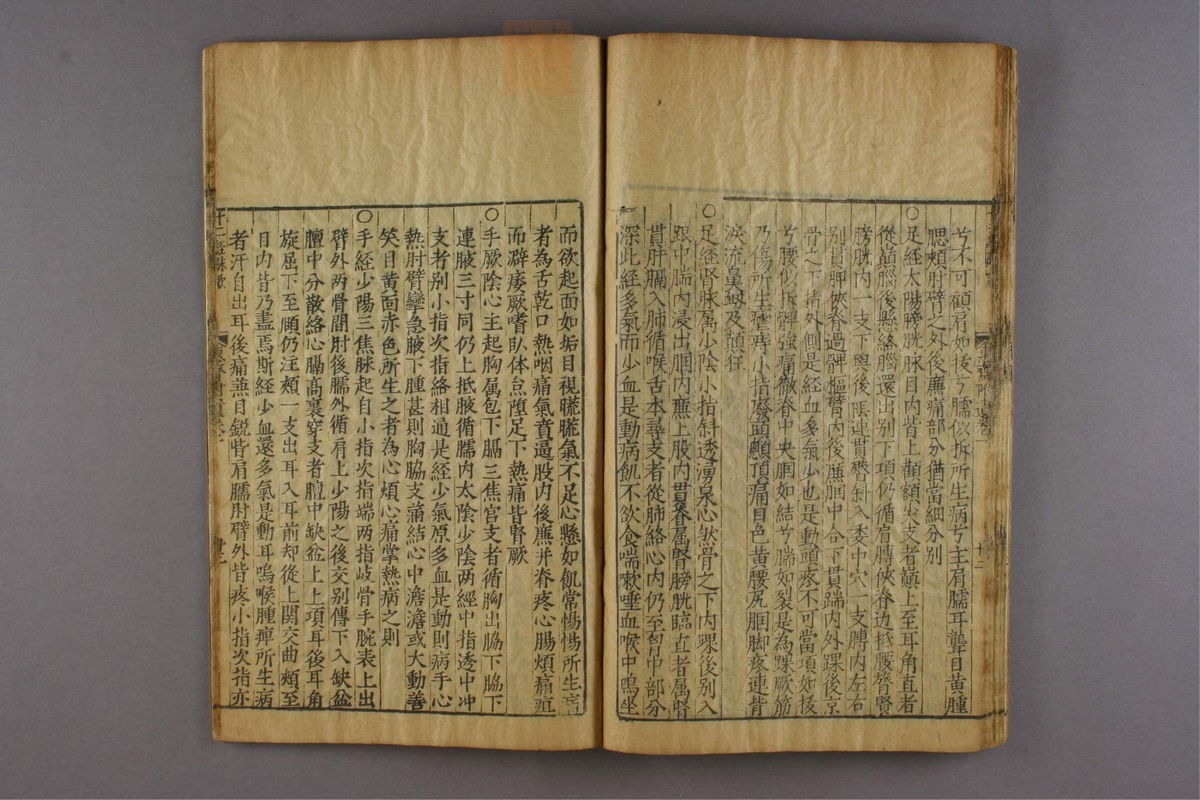 兮不可顧肩如拔兮臑似拆所生病兮主肩臑耳聾目黃腫
腮頰肘臂之外後廉痛部分猶當細分別
〇足經太陽膀胱脉目內眥上顴額尖支者巔上至耳角直者
從巔腦後懸絡腦還出別下項仍循肩膊俠脊边抵腰膂腎
膀胱內一支下與後陰連貫臀斜入委中穴一支膊內左右
別貫胛俠脊過髀樞臂內後廉膕中合下貫踹內外踝後京
骨之下指外側是經血多氣少也是動頭疼不可當項如拔
兮腰似拆髀強痛徹脊中央膕如結兮踹如裂是為踝厥筋
乃傷所生瘧痔小指廢頭顖頂痛目色黃腰尻膕脚疼連背
淚流鼻衄及顛狂
〇足經腎脉属少陰小指斜透湧泉心然骨之下內踝後別入
跟中腨內浸出膕內廉上股內貫脊属腎膀胱臨直者属腎
貫肝膈入肺循喉舌本尋支者從肺絡心內仍至胷中部分
深此經多氣而少血是動病飢不欲食喘嗽唾血喉中鳴坐
而欲起面如垢目視𥆧𥆧氣不足心懸如飢常惕惕所生病
者為舌乾口熱咽痛氣賁逼股內後廉并脊疼心腸煩痛疽
而澼痿厥嗜臥体怠墮足下熱痛皆腎厥
〇手厥陰心主起胸属包下膈三焦宮支者循胸出脇下脇下
連腋三寸同仍上抵腋循臑內太陰少陰兩經中指透中冲
支者別小指次指絡相通是經少氣原多血是動則病手心
熱肘臂攣急腋下腫甚則胸脇支滿結心中澹澹或大動善
笑目黃面赤色所生之者為心煩心痛掌熱病之則
〇手經少陽三焦脉起自小指次指端两指岐骨手腕表上出
臂外两骨間肘後臑外循肩上少陽之後交別傳下入缺盆
膻中分散絡心膈高裏穿支者膻中缺盆上上項耳後耳角
旋屈下至頤仍注頰一支出耳入耳前却從上関交曲頰至
目內眥乃盡焉斯經少血還多氣是動耳鳴喉腫痺所生病
者汗自出耳後痛兼目鋭眥肩臑肘臂外皆疼小指次指亦